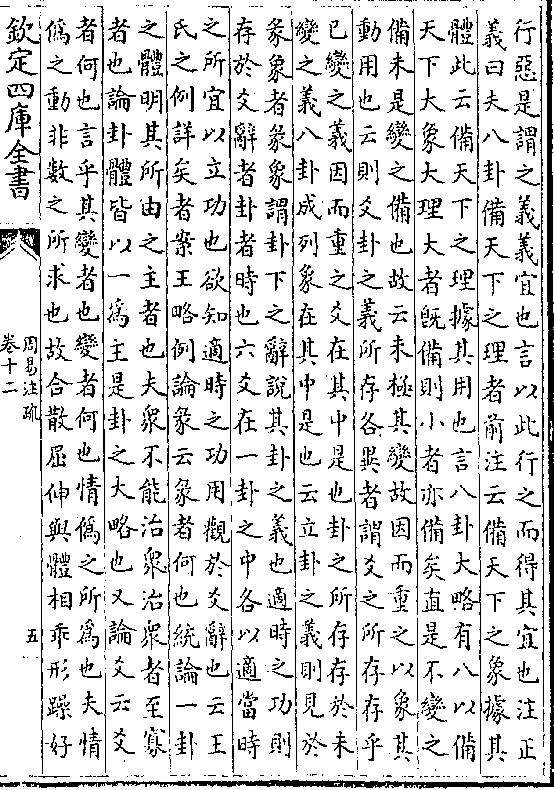 行惡是謂之義義宜也言以此行之而得其宜也注正
義曰夫八卦備天下之理者前注云備天下之象據其
體此云備天下之理據其用也言八卦大略有八以備
天下大象大理大者既備則小者亦備矣直是不變之
備未是變之備也故云未極其變故因而重之以象其
動用也云則爻卦之義所存各異者謂爻之所存存乎
已變之義因而重之爻在其中是也卦之所存存於未
變之義八卦成列象在其中是也云立卦之義則見於
彖象者彖象謂卦下之辭說其卦之義也適時之功則
存於爻辭者卦者時也六爻在一卦之中各以適當時
之所宜以立功也欲知適時之功用觀於爻辭也云王
氏之例詳矣者案王略例論彖云彖者何也統論一卦
之體明其所由之主者也夫衆不能治衆治衆者至寡
者也論卦體皆以一為主是卦之大略也又論爻云爻
者何也言乎其變者也變者何也情偽之所為也夫情
偽之動非數之所求也故合散屈伸與體相乖形躁好
欽定四庫全書
周易注疏
卷十二
五